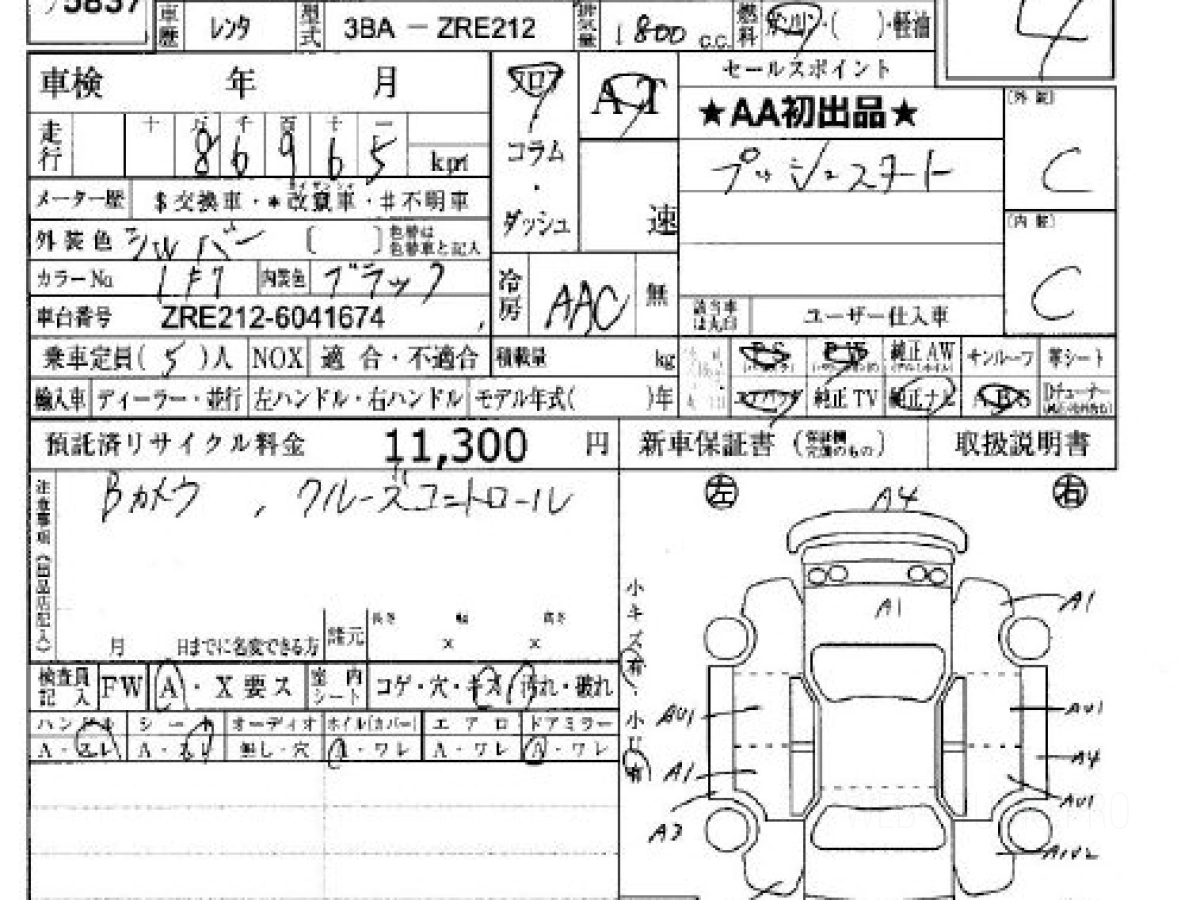 5837 車歴 レンタ 型式 3BA - ZRE212 排気量 1800 c.c. 燃料 ガソリン・( )・軽油 4
車検 年 月 フロア AT セールスポイント
コラム ★AA初出品★ (外装)
走行 十 万 千 百 十 一
8 6 9 6 5 km
・ プッシュスタート C
メーター歴 $交換車・*改竄車・#不明車
ダッシュ 速 (内装)
外装色 シルバー 〔 〕 色替は色替車と記入
カラーNo 1F7 内装色 ブラック 冷房 AAC 無 C
車台番号 ZRE212-6041674 該当車は丸印 ユーザー仕入車
乗車定員( 5 )人 NOX 適合・不適合 積載量 kg PS PW 純正AW サンルーフ 革シート
輸入車 ディーラー・並行 左ハンドル・右ハンドル モデル年式( )年 エアバッグ 純正TV 純正ナビ ABS
預託済リサイクル料金 11,300 円 新車保証書 取扱説明書
注意事項(出品店記入) Bカメラ , クルーズコントロール
左 A4 右
A1 A1
小キズ有・小U有
月 日までに名変できる方 諸元 長さ × 幅 × 高さ
検査員記入 FW A・X要ス 室内シート コゲ・穴・キズ・汚れ・破れ
ハンドル シート オーディオ ホイル(カバー) エアロ ドアミラー
A・スレ A・スレ 無し・穴 A・ワレ A・ワレ A・ワレ
AU1 AU1
A1 A4
AU1
A3 A1U2